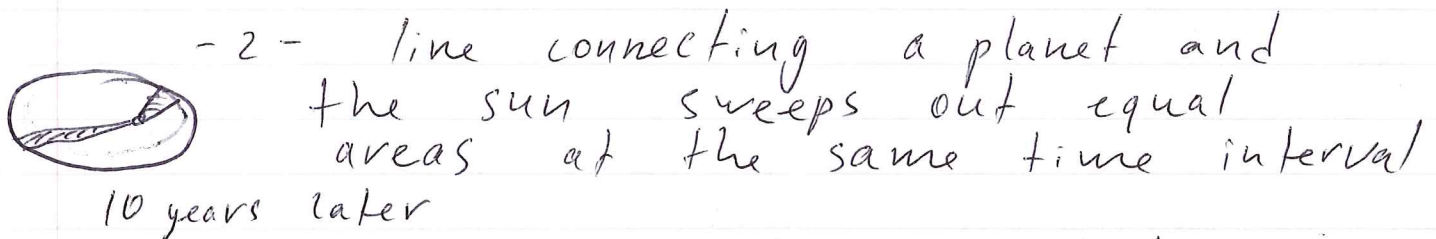 - 2 - line connecting a planet and
the sun sweeps out equal
areas at the same time interval
10 years later